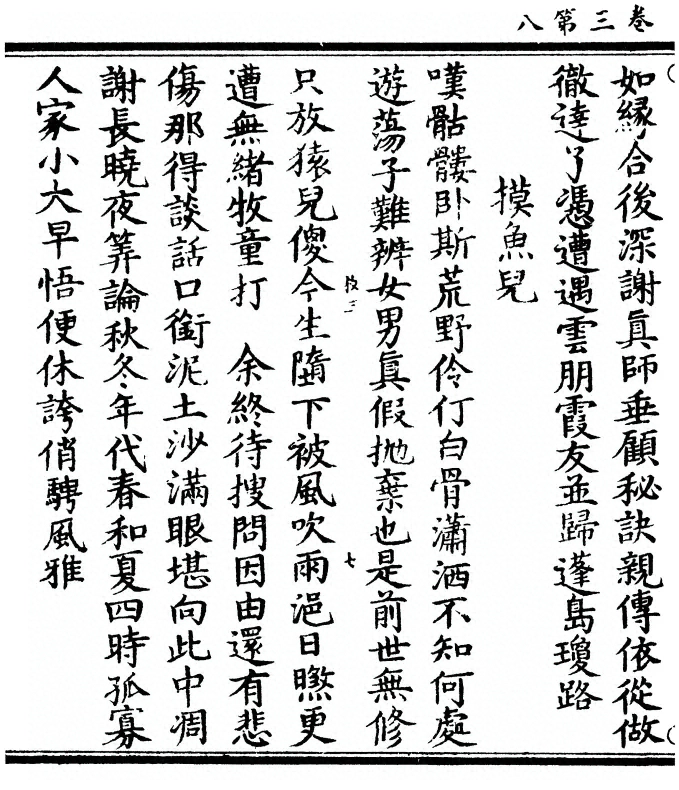 卷三第八
如緣合後深謝眞師垂顧秘訣親傳依從做
徹達了憑遭遇雲朋霞友並歸蓬島瓊路
摸魚兒
嘆骷髏臥斯荒野伶仃白骨瀟洒不知何處
遊蕩子難辨女男眞假抛棄也是前世無修
攱三
七
只放猿兒傻今生墮下被風吹雨浥日㬠更
遭無緒牧童打　余終待搜問因由還有悲
傷那得談話口銜泥土沙滿眼堪向此中凋
謝長曉夜筭論秋冬年代春和夏四時孤寡
人家小大早悟便休誇俏騁風雅